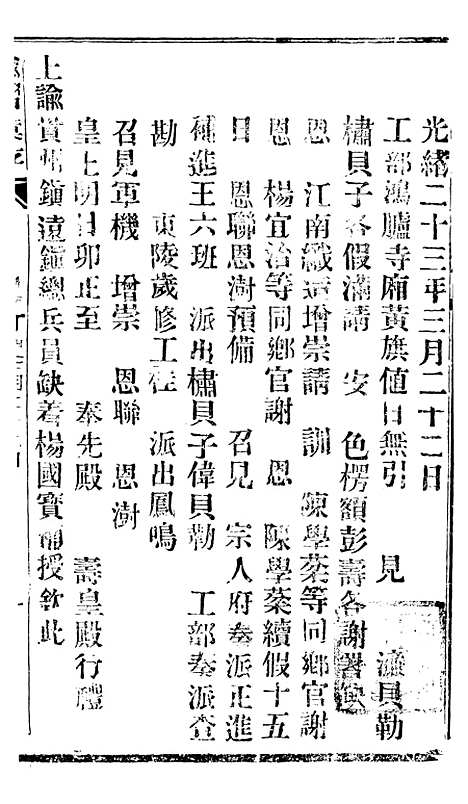 光緒二十三年三月二十二日
工部鴻臚寺廂黃旗值日無引　見　濂貝勒
橚貝子各假滿請　安　色楞額彭壽各謝署缺
恩　江南織造增崇請　訓　陳學棻等同鄉官謝
恩　楊宜治等同鄉官謝　恩　陳學棻續假十五
日　恩聯恩澍預備　召見　宗人府奏派正進
補進王六班　派出橚貝子偉貝勒　工部奏派查
勘　東陵歲修工程　派出鳳鳴
召見軍機　增崇　恩聯　恩澍
皇上明日卯正至　奉先殿　壽皇殿行禮
上諭貴州鎮遠鎮總兵員缺着楊國寶補授欽此